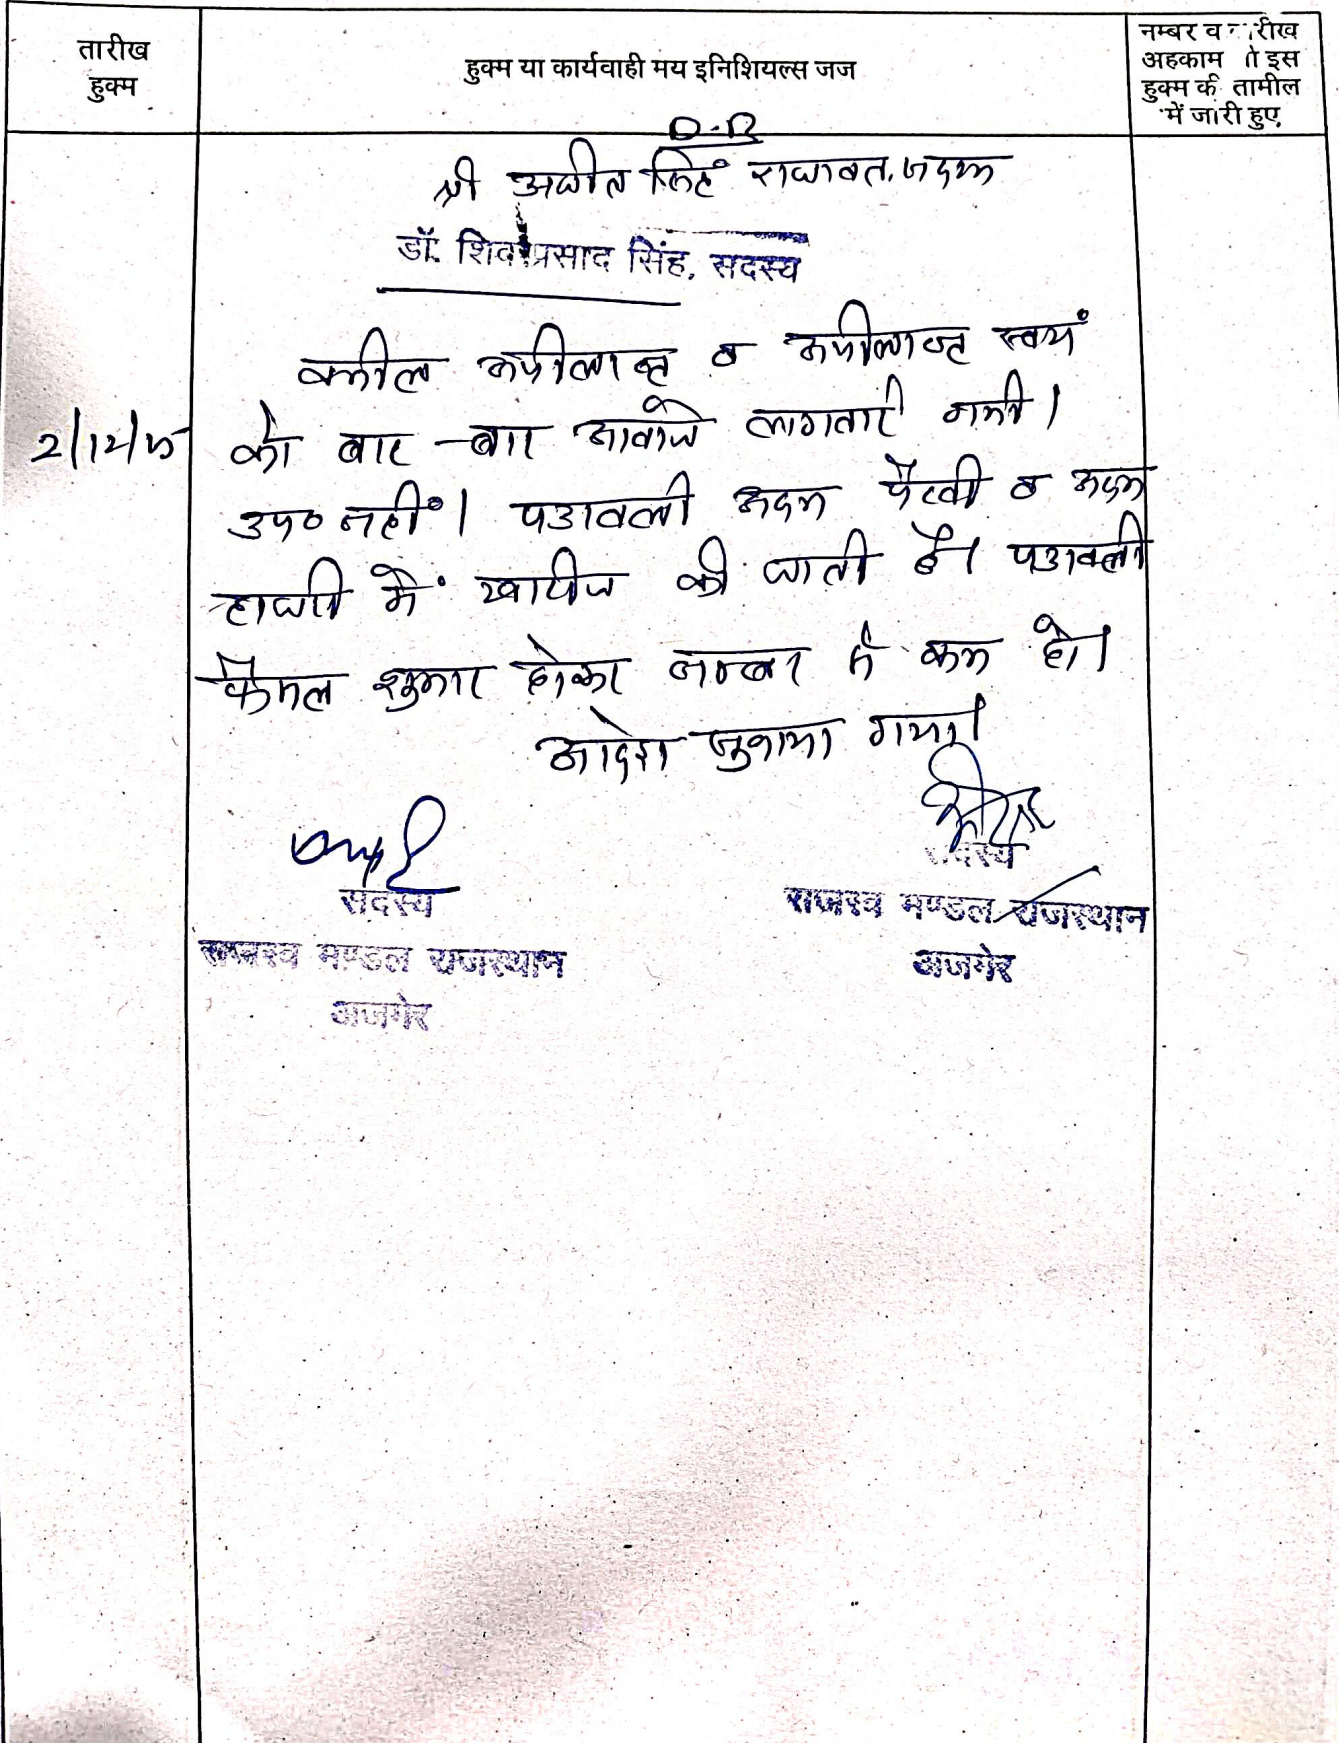 तारीख
हुक्म
हुक्म या कार्यवाही मय इनिशियल्स जज
नम्बर व तारीख
अहकाम जो इस
हुक्म की तामील
में जारी हुए
D.B
श्री अजीत सिंह राजावत, सदस्य
डॉ. शिवप्रसाद सिंह, सदस्य
वकील अपीलाण्ट व अपीलाण्ट स्वयं
को बार-बार आवाजे लगवाई गयी।
उप० नहीं। पत्रावली अदम पैरवी व अदम
हाजरी में खारीज की जाती है। पत्रावली
फैसल शुमार होकर नम्बर से कम हो।
आदेश सुनाया गया।
सदस्य
राजस्व मण्डल राजस्थान
अजमेर
सदस्य
राजस्व मण्डल राजस्थान
अजमेर